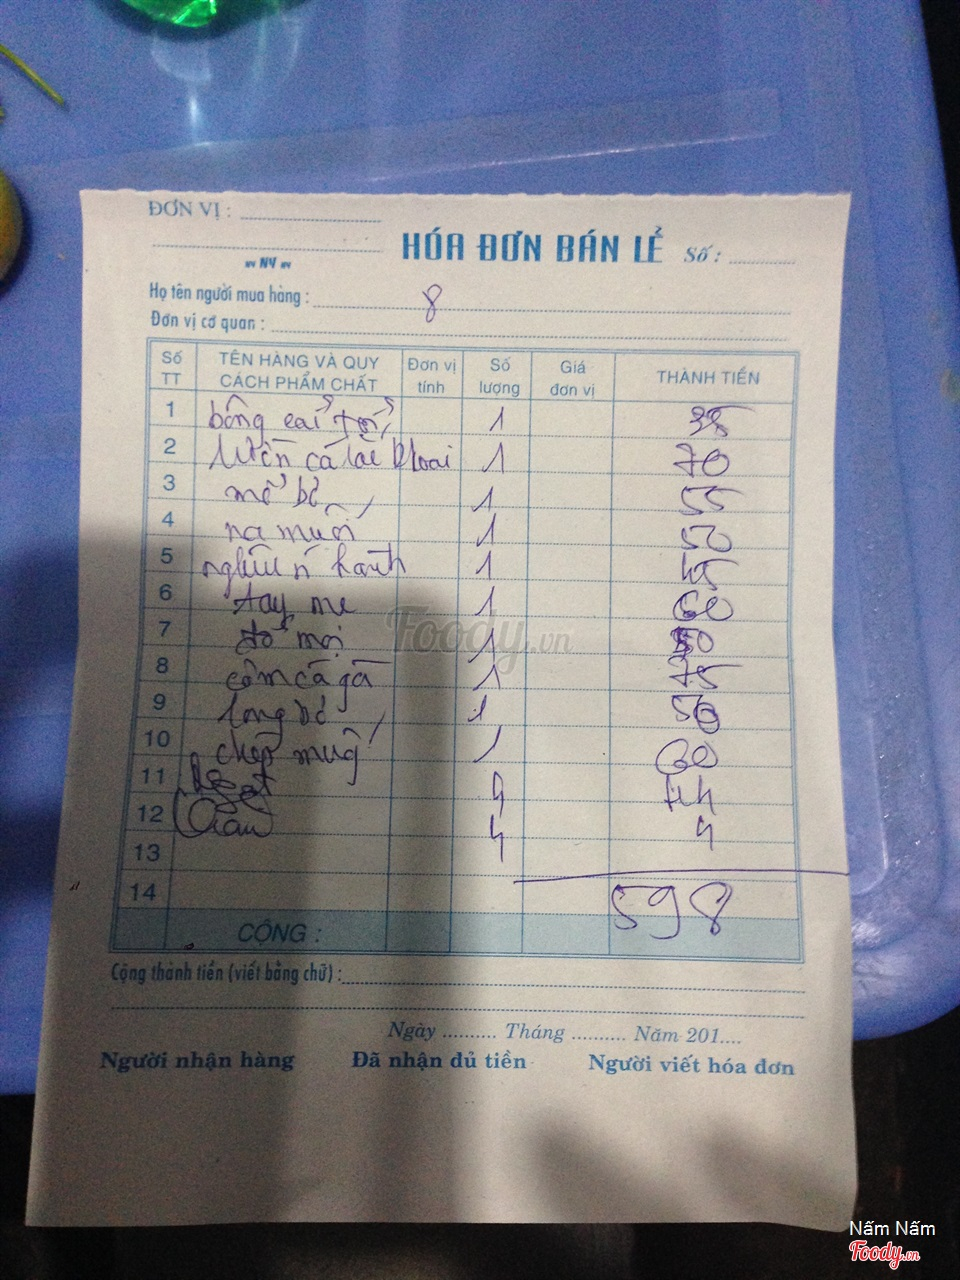 ĐƠN VỊ :
HÓA ĐƠN BÁN LẺ Số :
NY
Họ tên người mua hàng : 8
Đơn vị cơ quan :
Số TT TÊN HÀNG VÀ QUY CÁCH PHẨM CHẤT Đơn vị tính Số lượng Giá đơn vị THÀNH TIỀN
1 bông cải tỏi 1 35
2 cá lăi khoai 1 70
3 bò 1 55
4 muối 1 50
5 hành 1
6 me 1 60
7 1 50
8 cơm cá gà 1 75
9 lòng bò 1 50
10 1 60
11 4
12 4 4
13
14 598
CỘNG :
Cộng thành tiền (viết bằng chữ) :
Ngày .......... Tháng .......... Năm 201....
Người nhận hàng Đã nhận đủ tiền Người viết hóa đơn
Foody.vn
Nấm Nấm
Foody.vn